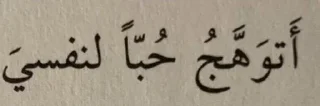 أَتوَهَّجُ حُبّاً لنفسيَ